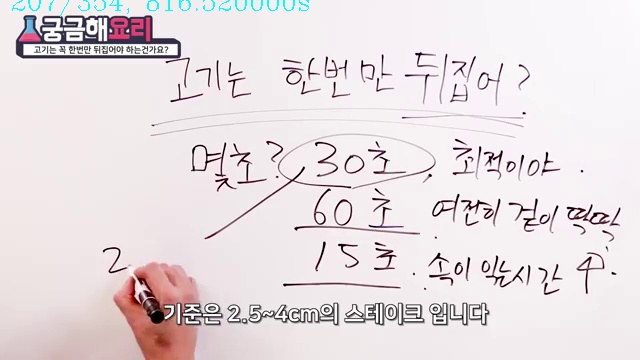 207/354, 816.520000s
궁금해요리
고기는 꼭 한번만 뒤집어야 하는건가요?
고기는 한번만 뒤집어?
몇초? 30초, 최적이야.
60초. 여전히 겉이 딱딱
15초. 속이 익는시간 ↑.
2.
기준은 2.5~4cm의 스테이크 입니다